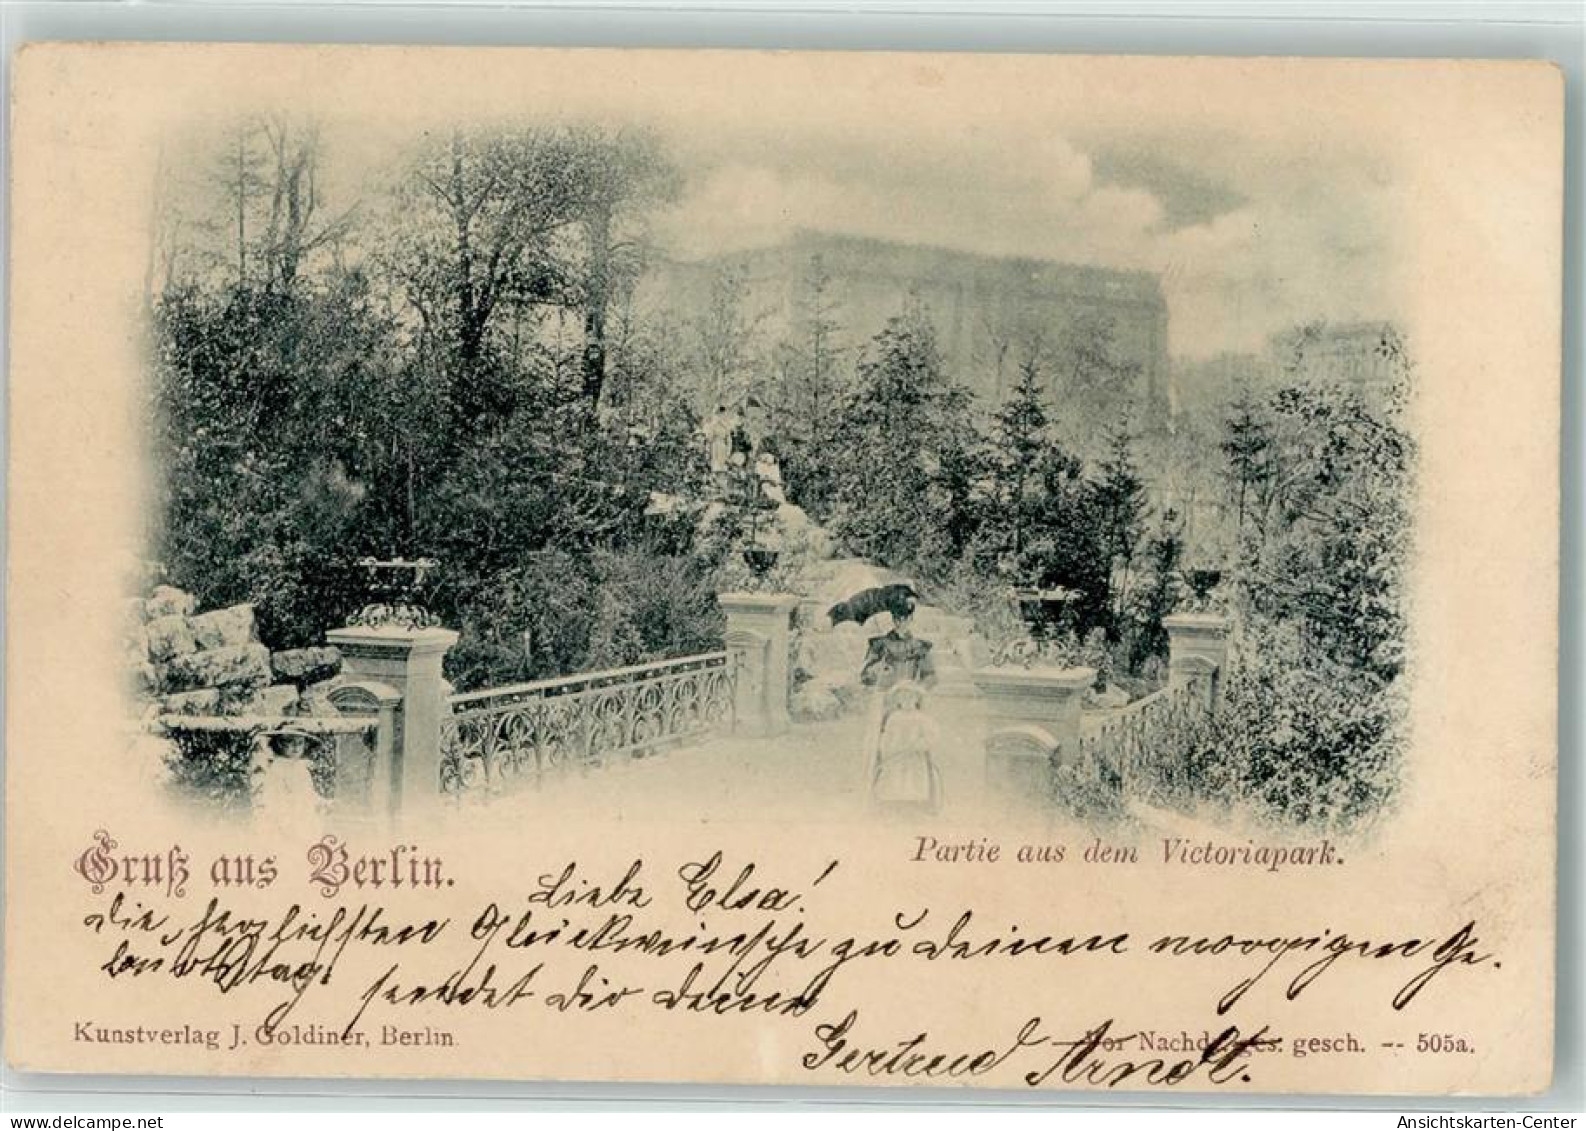 Gruß aus Berlin.
Partie aus dem Victoriapark.
Liebe Elsa!
Die herzlichsten Glückwünsche zu deinen morgigen Ge-
burtstag. sendet Dir Deine
Gertrud Arndt.
Kunstverlag J. Goldiner, Berlin.
Vor Nachdr. ges. gesch. -- 505a.
oldthing
Ansichtskarten-Center